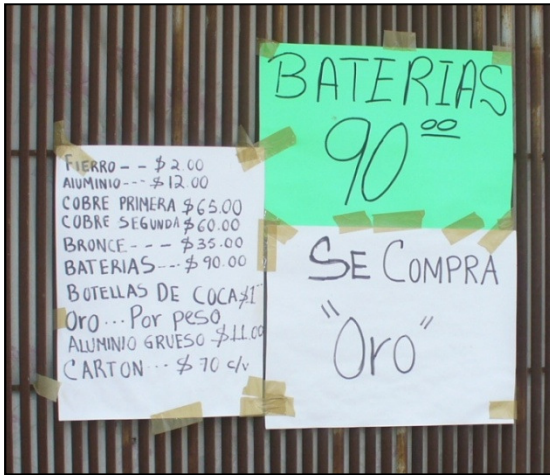 FIERRO -- $2.00
ALUMINIO --- $12.00
COBRE PRIMERA $65.00
COBRE SEGUNDA $60.00
BRONCE --- $35.00
BATERIAS --- $90.00
BOTELLAS DE COCA $1
Oro ... Por peso
ALUMINIO GRUESO $11.00
CARTON ... $70 c/v
BATERIAS
90.00
SE COMPRA
"Oro"